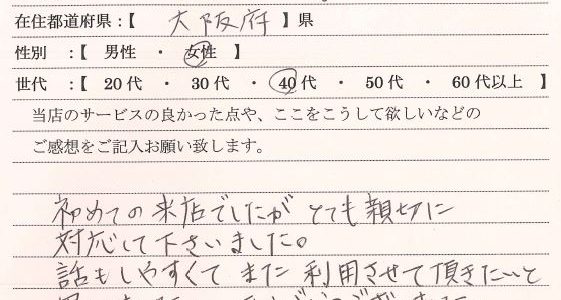 在住都道府県:【 大阪府 】県
性別 :【 男性 ・ 女性 】
世代 :【 20代 ・ 30代 ・ 40代 ・ 50代 ・ 60代以上 】
当店のサービスの良かった点や、ここをこうして欲しいなどの
ご感想をご記入お願い致します。
初めての来店でしたが とても親切に
対応して下さいました。
話もしやすくて また 利用させて頂きたいと